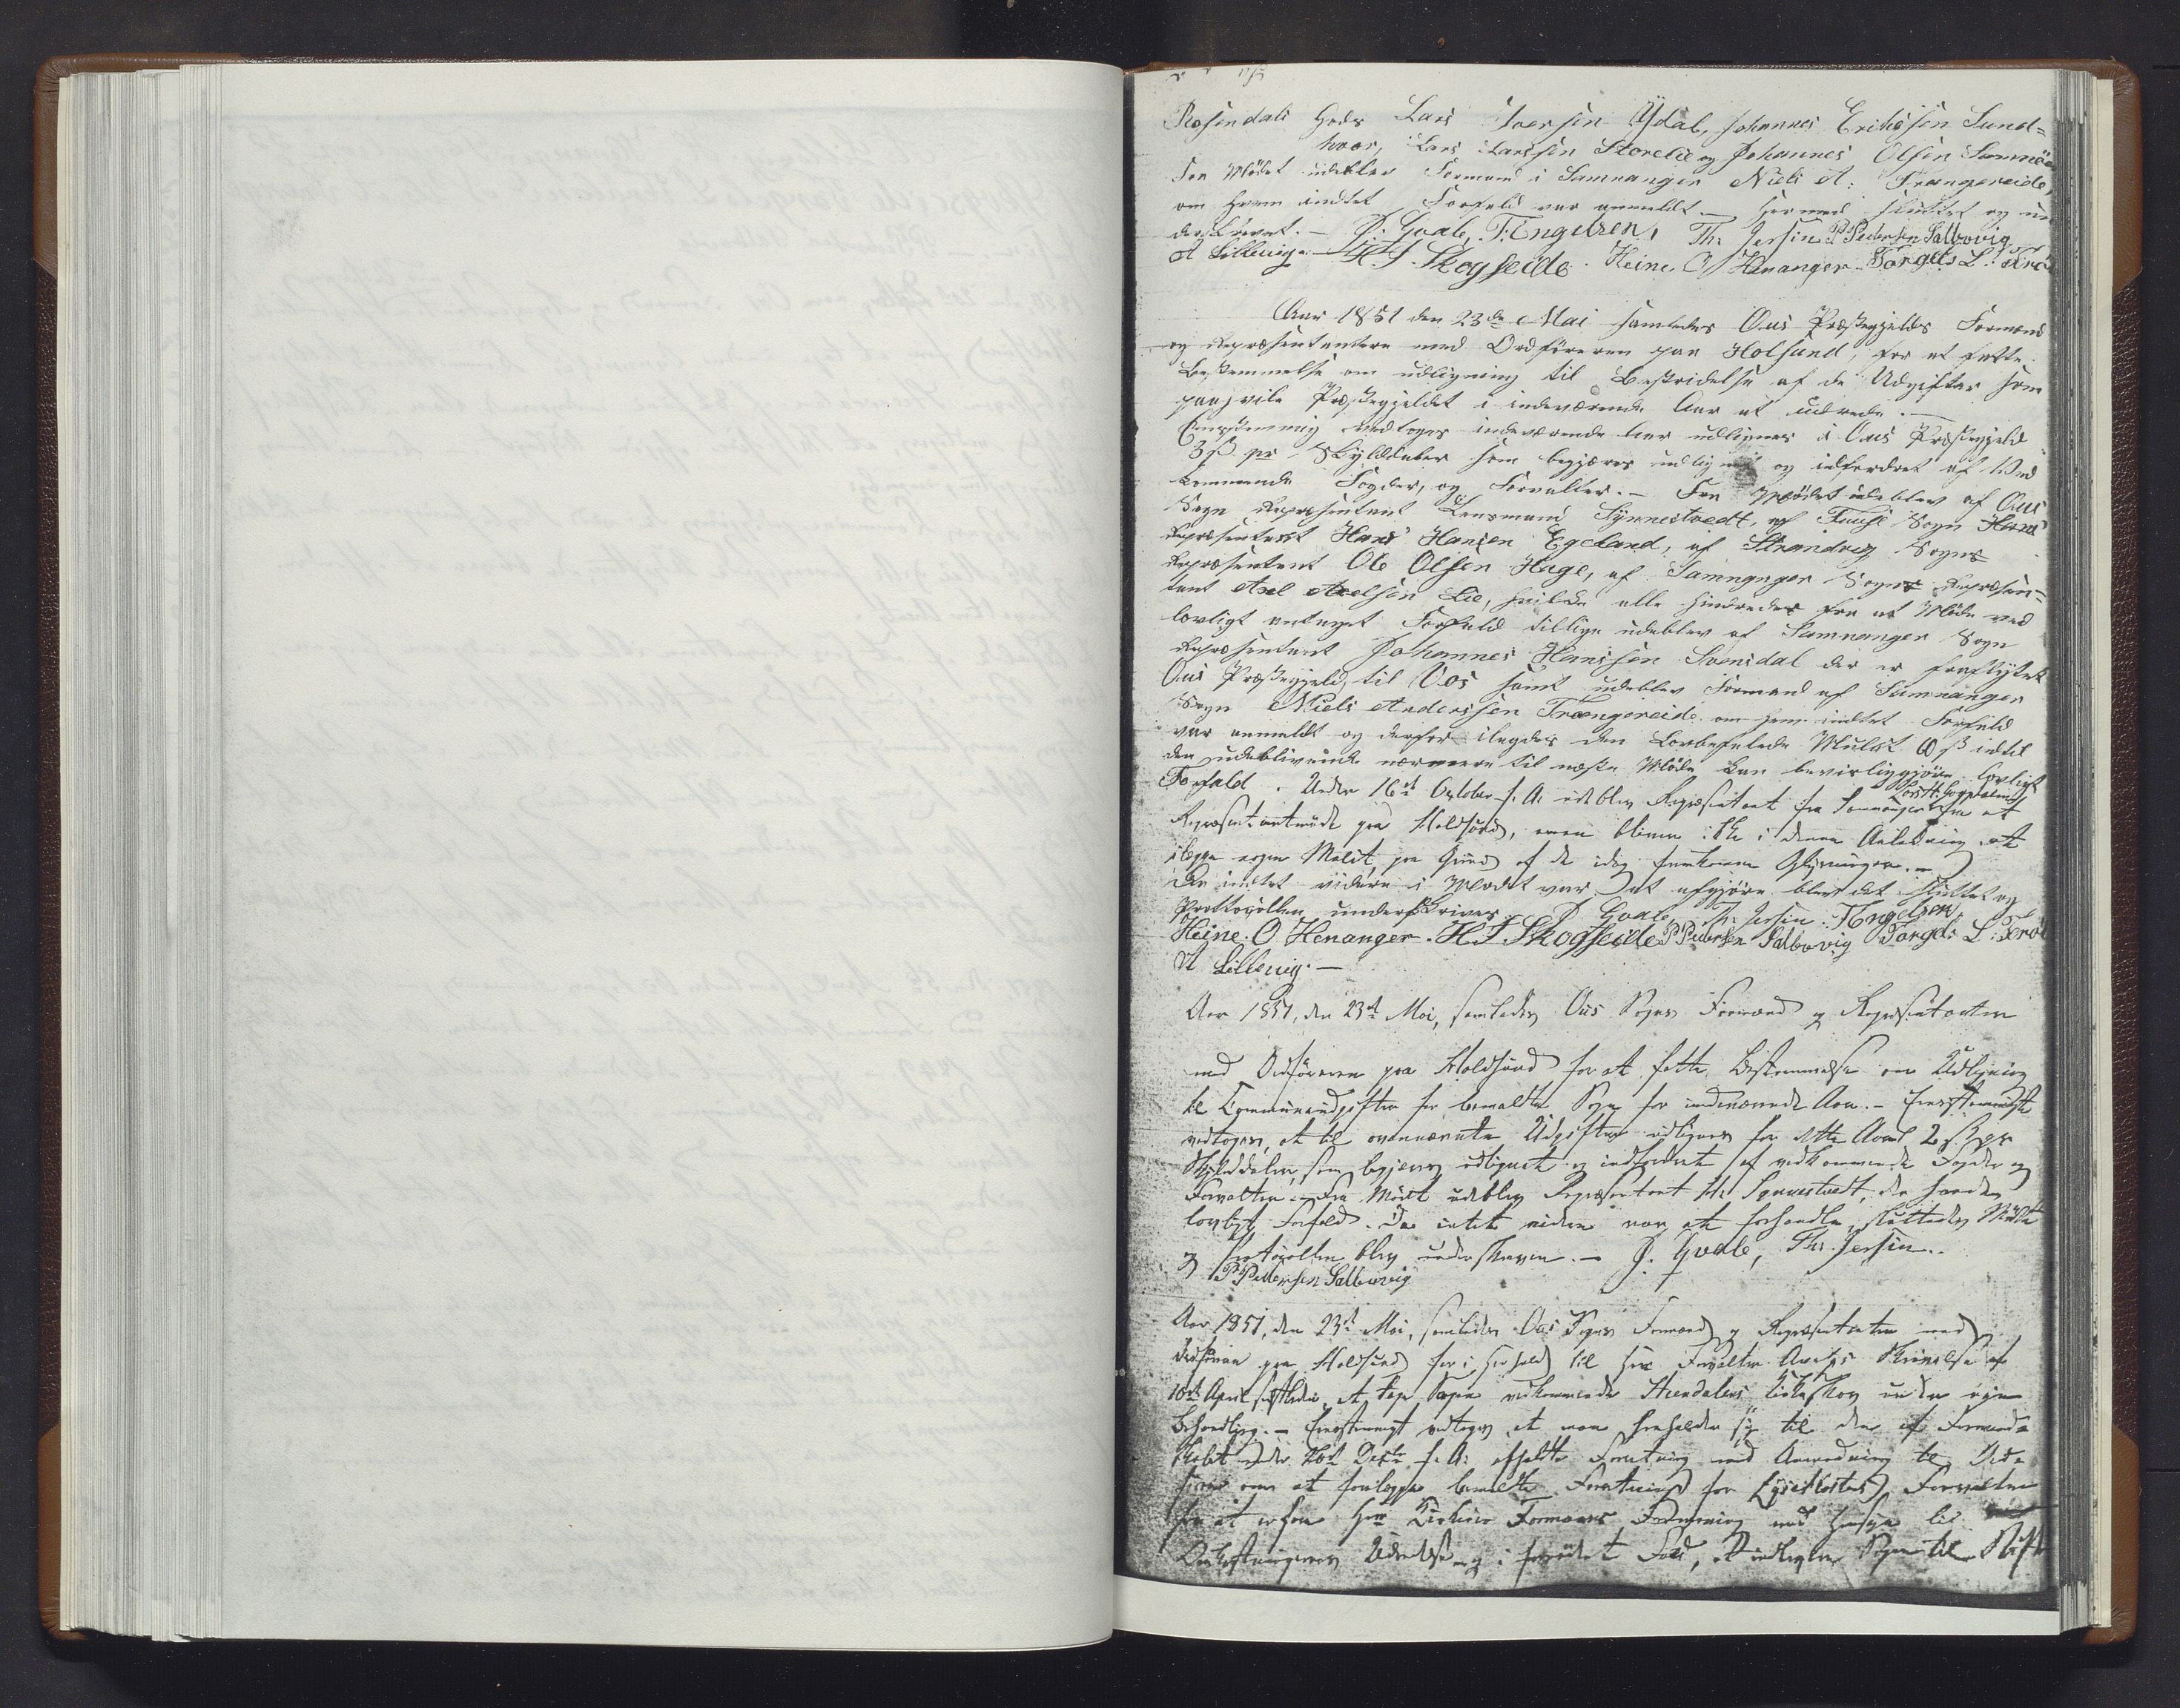 Rosendals Gods Lars Iversen Ydal, Johannes Erichsen Sund=
hvor, Lars Larssen Storelie og Johannes Olsen Samnöe
Fra Mødet udeblev Formand i Samnanger Niels A: Trængereide,
om hvem intet Forfald var anmeldt. – Hermed sluttet og un
derskrevet. – P. Gvale, T. Engelsen, Th: Jersin P Pedersen Salbovig
A Lillevig. – H J Skogseide. Heine. O Henanger. Torgels L:
Aar 1851 den 23de Mai samledes Ous Præstegjelds Formænd
og Repræsentantere med Ordføreren paa Holsund, for at fatte
Bestemmelse om udligning til Bestridelse af de Udgifter som
paahvile Præstegjeldet i indeværende Aar at udrede. –
Eenstemmig vedtoges indeværende Aar udlignes i Ous Præstegjeld
3 ß pr Skylddaler som begjæres udlignet og indfordret af Ved
kommende Fogder, og Forvalter. – Fra Mødet udeblev af Ous
Sogn Repræsentant Lensmand Synnestvedt, af Fuuse Sogn Hans
Repræsentant Hans Hansen Egeland, af Strandvig Sogns
Repræsentant Ole Olsen Hage, af Samnanger Sogns Repræsen=
tant Axel Axelsen Lie, hvilke alle hindredes fra at Møde ved
lovligt antaget Forfald tillige udeblev af Samnanger Sogn
Repræsentant Johannes Hanssen Svensdal der er fraflyttet
Ous Præstegjeld til Vos samt udeblev Formand af Samnanger
Sogn Niels Anderssen Trængereide om hvem intet Forfald
var anmeldt og derfor ilægdes den Lovbefalede Mulct indtil
den udeblivende nærmere til næste Møde kan bevisliggjøre lovligt
Forfald. Under 16de October f. A. udeblev Repræsentant fra Samnanger fra et
Repræsentantmøde paa Holdsund, men bliver ikke i denne Anledning at
ilægge nogen Mulct paa Grund af de idag fremkomne Oplysninger. –
Da intet videre i Mødet var at afgjøre blev det sluttet og
Protocollen underskrives. P Gvale, Th: Jersin. T Engelsen,
Heine. O Henanger. H J Skogseide P Pedersen Salbovig Torgels L:
A Lillevig. –
Aar 1851, den 23de Mai, samledes Ous Sogns Formænd og Repræsentanter
med Ordføreren paa Holdsund for at fatte Bestemmelse om Udligning
til Communeudgifter for bemeldte Sogn for indeværende Aar. – Eenstemmigt
vedtoges, at til ovennævnte Udgifter udlignes for dette Aar 2 ß pr
Skylddaler, som begjæres udlignet og indfordret af vedkommende Fogder og
Forvalter. – Fra Mødet udeblev Repræsentant Hr Synnestvedt, der havde
lovligt Forfald. Da intet videre var at forhandle, sluttedes Mødet
og Protocollen blev underskreven. – P. Gvale, Th: Jersin..
P Pedersen Salbovig
Aar 1851, den 23de Mai, samledes Ous Sogns Formænd og Repræsentanter med
Ordføreren paa Holdsund for i Henhold til Herr Forvalter Skrivelse af
10de April sidstleden at tage Sagen vedkommende Kirkeskov under egen
Behandling. – Eenstemmigt vedtoges at man henholder sig til den af Formand=
skabet under Decbr f. A. afholdte Forretning med Anmodning til Ord=
føreren om at forelægge bemeldte Forretning for Lyseklosters Forvalter
for at erfare Herr Formening med Hensyn til
Omkostningernes Udredelse og i fornødent Fald, at indlevere Sagen til Stift